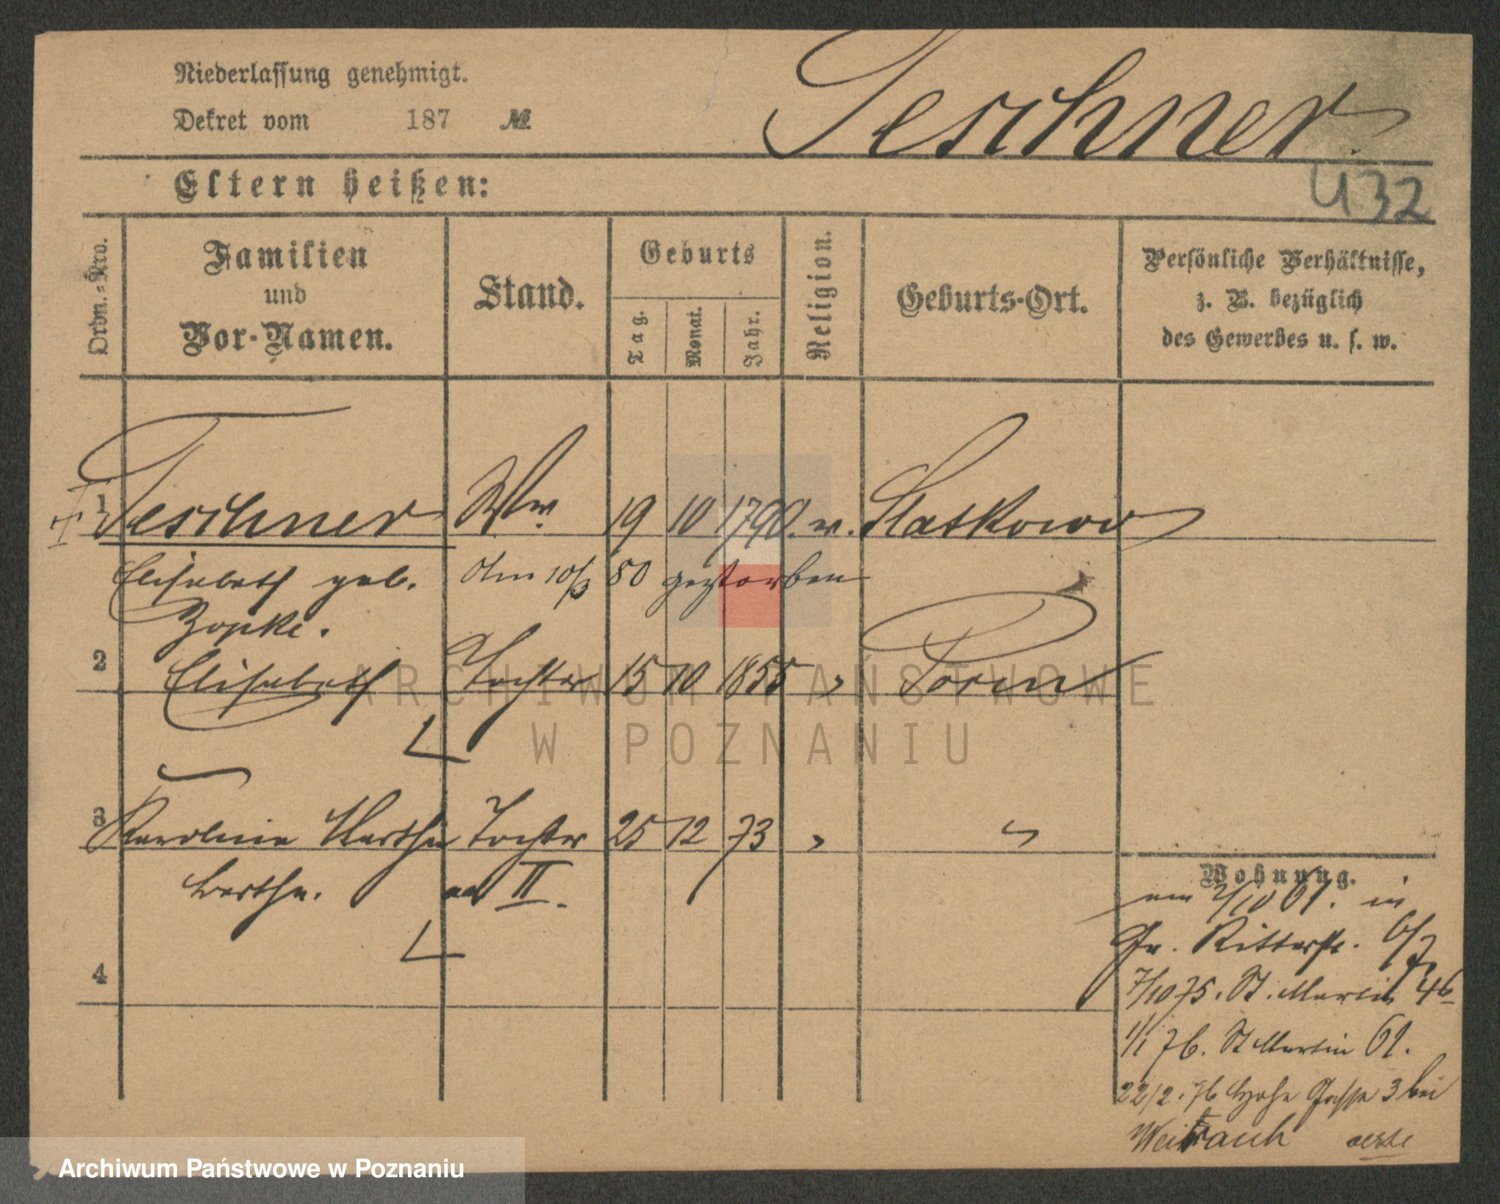 Niederlassung genehmigt.
Teschner
Dekret vom 187 №
Eltern heißen:
432
Ordn.-Nro.
Familien und Vor-Namen.
Stand.
Geburts
Tag.
Monat.
Jahr.
Religion.
Geburts-Ort.
Persönliche Verhältnisse,
z. B. bezüglich
des Gewerbes u. s. w.
1 Teschner Ww. 19 10 1790
Elisabeth geb. 80 gestorben
Zopke.
2 Elisabeth Tochter 15 10 1855 Posen
3 Karoline Martha Tochter 25 12 73 "
Bertha. II.
4
Wohnung.
in
Gr. Ritterstr. 6/7
7/10 75. St. Martin 46
1/1 76. St Martin 61.
22/2. 76 Hohe Gasse 3 bei
Weitrauch
ARCHIWUM PAŃSTWOWE
W POZNANIU
Archiwum Państwowe w Poznaniu